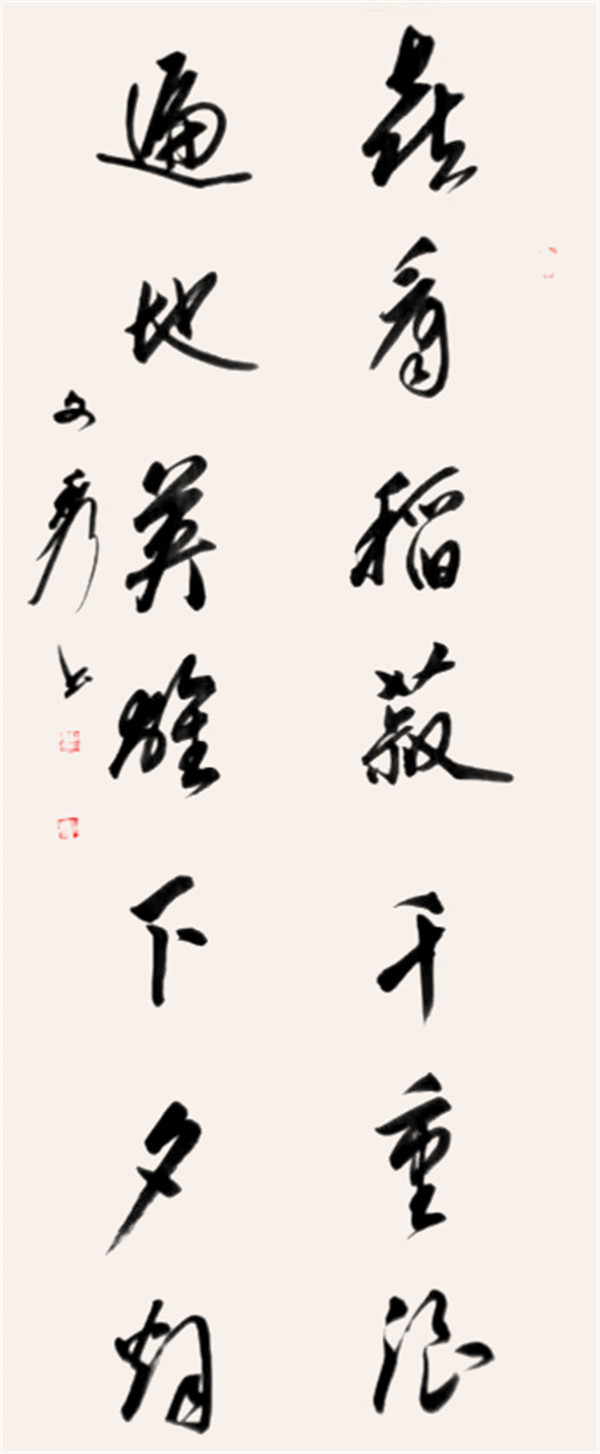 喜看稻菽千重浪
遍地英雄下夕烟
文秀书